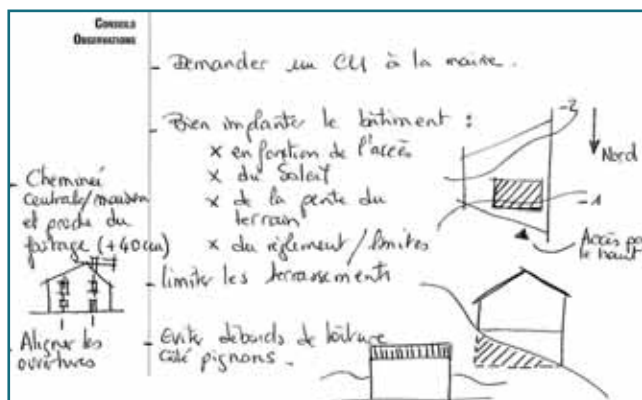 CONSEILS
OBSERVATIONS
- Demander un CU à la mairie.
- Bien implanter le bâtiment :
x en fonction de l'accès
x du Soleil
x de la pente du
terrain
x du règlement/limites
- limiter les terrassements
- Eviter débords de toiture
côté pignons.
- Cheminée
centrale/maison
et proche du
faîtage (+40cm)
- Aligner les
ouvertures
-2
Nord
-1
Accès par
le haut